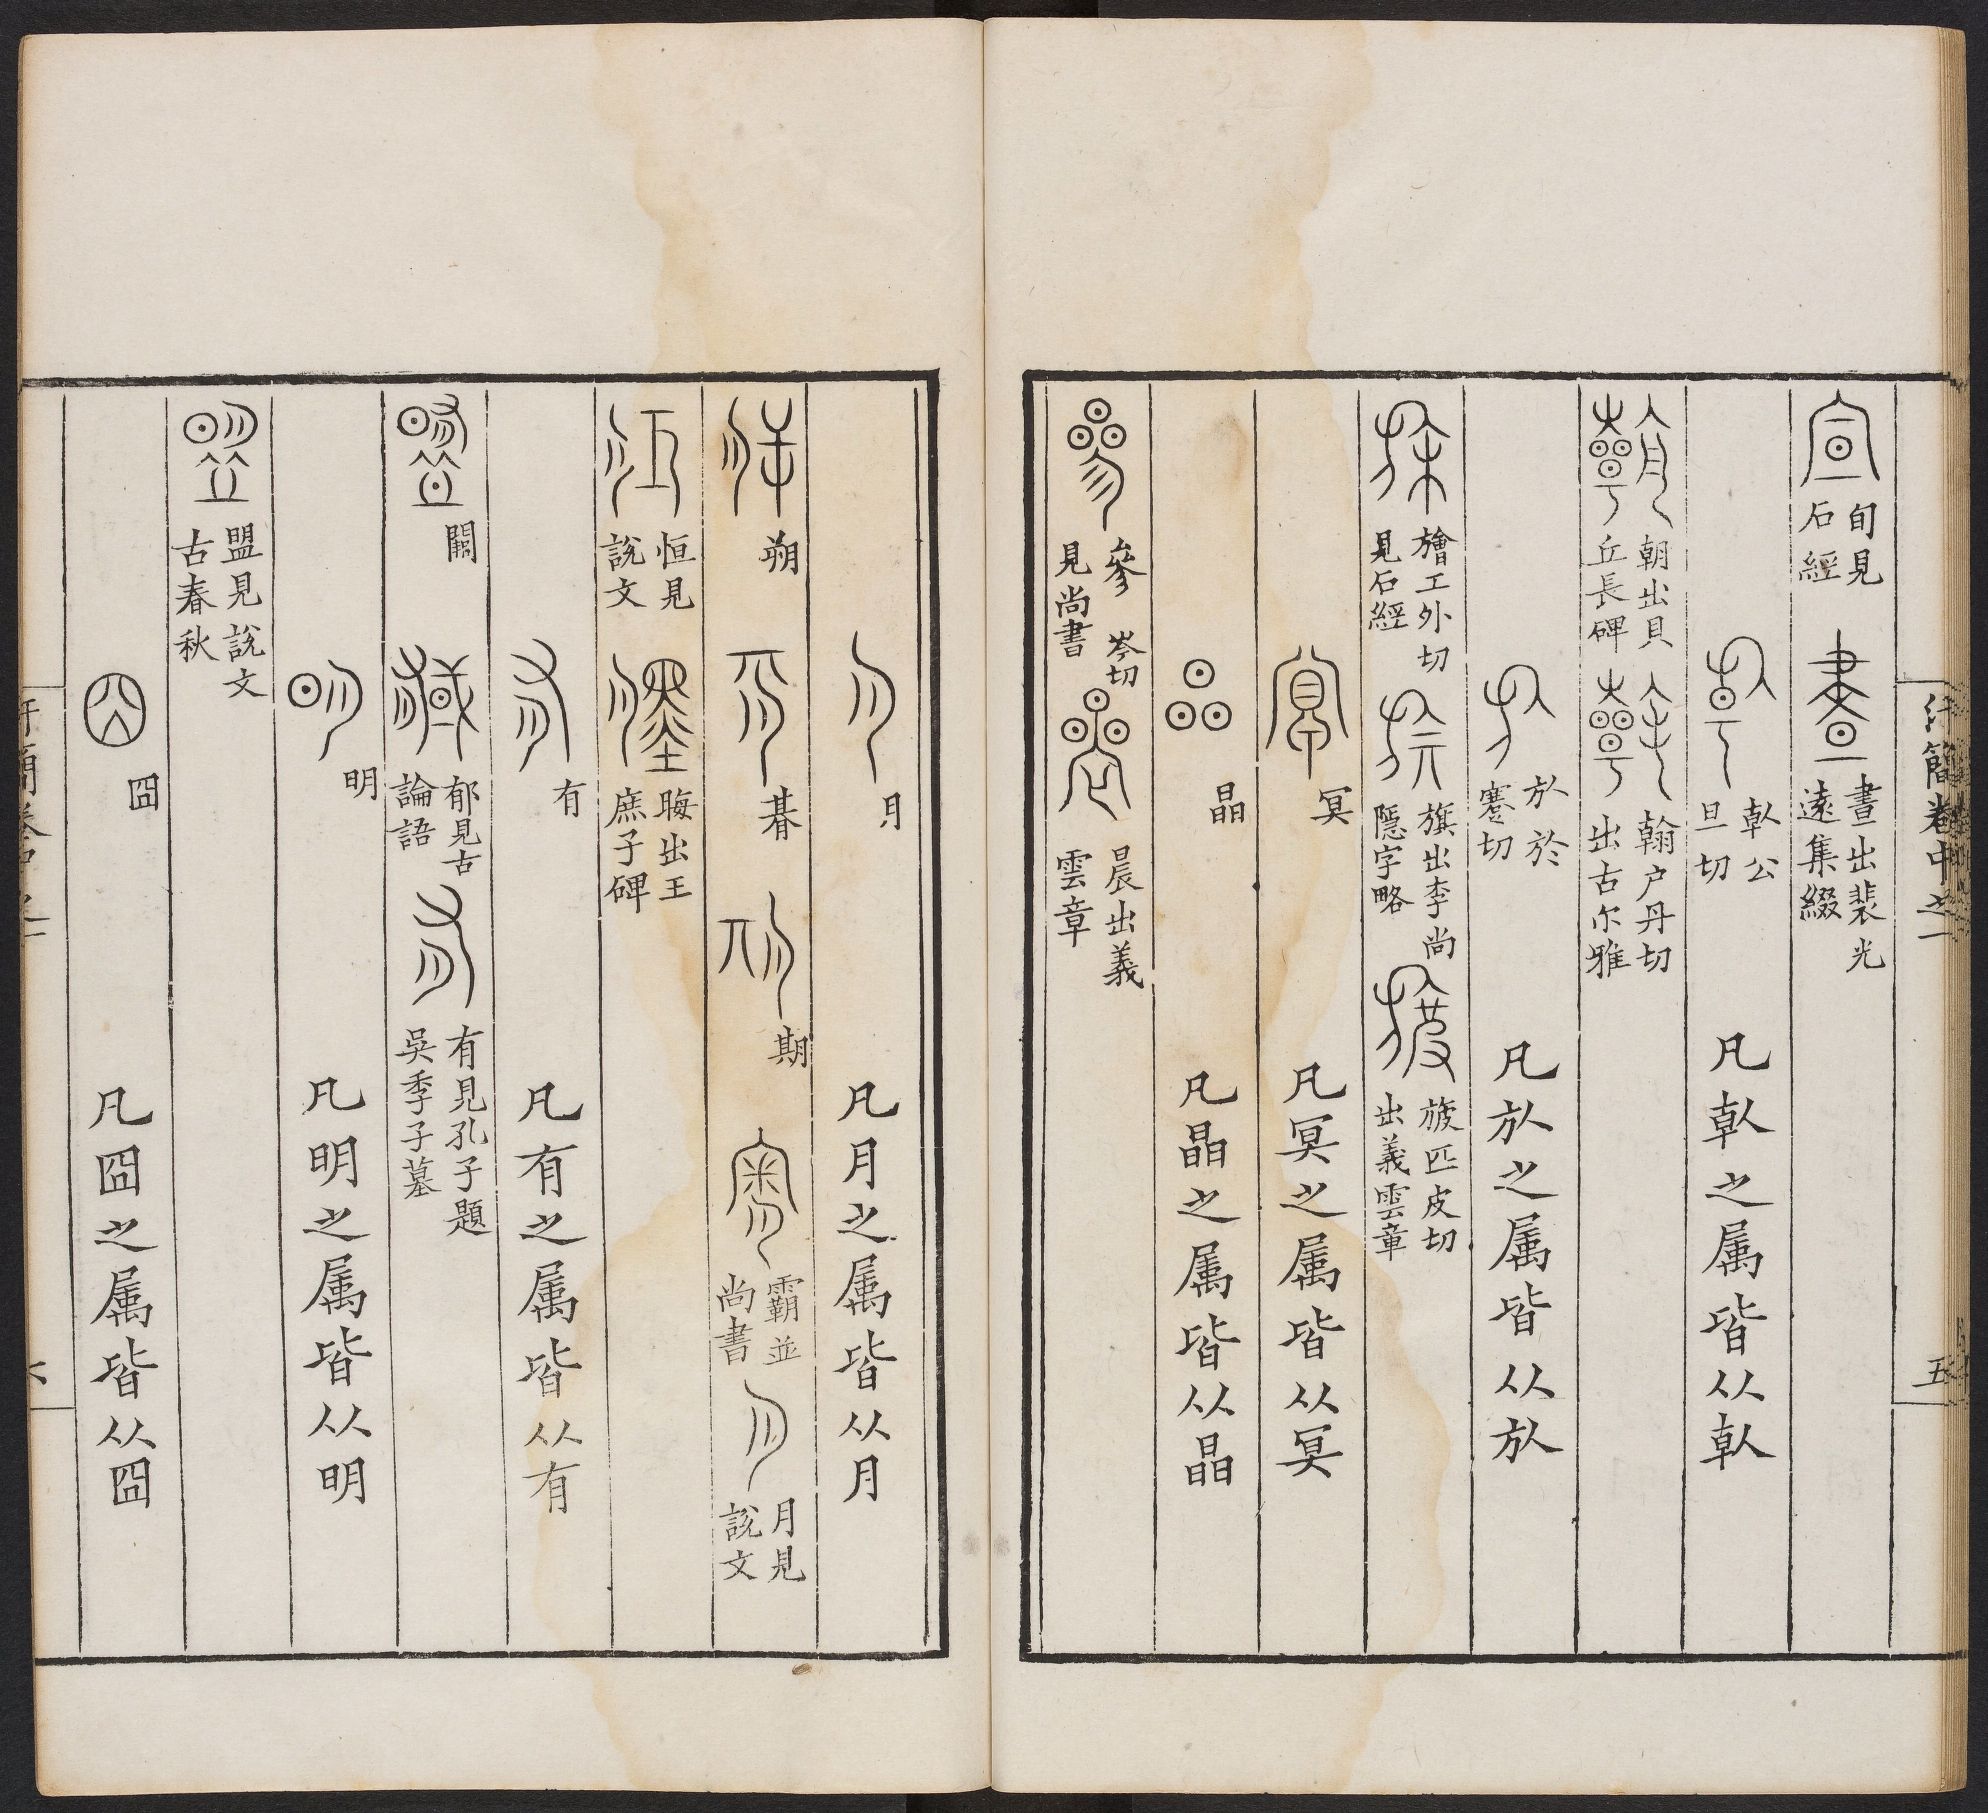 汗簡卷中之一
五
旬見石經
晝出裴光遠集綴
倝公旦切 凡倝之属皆从倝
朝出貝丘長碑
翰户丹切出古尔雅
㫃於蹇切 凡㫃之属皆从㫃
旝工外切見石經
旗出李尚隱字略
旇匹皮切出義雲章
冥 凡冥之属皆从冥
晶 凡晶之属皆从晶
參岑切見尚書
晨出義雲章
月 凡月之属皆从月
朔 朞 期 霸並尚書 月見說文
恒見說文
晦出王庶子碑
有 凡有之属皆从有
闕
郁見古論語
有見孔子題吳季子墓
明 凡明之属皆从明
盟見說文古春秋
囧 凡囧之属皆从囧